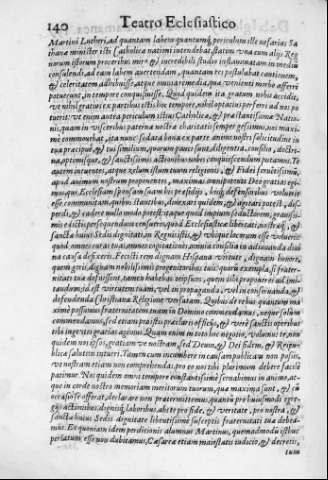 140 Teatro Eclesiastico
Martini Lutheri, ad quantam labem quantumq́; periculum ille nefarius Sa
thanæ minister isti Catholicæ nationi intendebat statim vna cum alijs Reg
norum istorum proceribus mir&, incredibili studio instauratam in medio
consulendi, ad eam labem auertendam, quantam res postulabat cautionem,
& celeritatem adhibuisse, atque nouis reta venienti morbo afferri
potuerunt, in tempore consuluisse. Quid quidem ita gratum nobis accidit,
ve nihil gratius ex partibus istis hoc tempore, nihil optatius perferri ad nos po
tuerit: ve enim autea periculum istius Catholicæ, & præstantissimæ Natio-
nis, quam in visceribus paternæ nostræ charitatis semper gessimus, nos maxi
mè commouebat, ita nunc sedata bona ex parte animi nostri solicitudine in
ea præcipuè, & tuo similium, quorum pauci sunt, diligentia, consilio, doctri-
na, optimisque, & sanctissimis actionibus nobis conquiescendum putamus. Te
autem intuentes, atque zelum istum tuum religionis, & Fidei feruentissimũ,
apud animum nostrum proponentes, maximas omnipotenti Deo gratias egi-
mus, quod Ecclesiam sponsam suam his præsidijs, huiq́; defensoribus voluerit
esse communitam, quibus stantibus, doniexari quidem, & agitari potest, dis-
perdi, & euelere nullo modo potest; atque quod in pium seductionem, grauissi-
mis edictis persequendum censueris, quod Ecclesiasticæ libertati nostræ, &
sanctæ huius Sedis dignitati, in Regnis istis, & vbique locorum esse volueris:
quod omnes curas tuas omnes cogitationes, omnia consilia in adiuuanda diui-
na causa defixeris. Fecisti rem dignam Hispana virtute, dignam honore,
quem geris, dignam nobilissimis progenitoribus tuis: quorũ exempla, si frater-
nitati tuæ defuissent, tamen habebas teipsum, quem tibi proponeres ad imi-
tandum, id est virtutem tuam, vel in propaganda, vel in conseruanda, &
defendenda Christiana Religione versatam. Quibus de rebus quantum ma
ximè possumus fraternitatem tuam in Domino commendamus, neque solùm
commendamus, sed etiam pro istis præclaris officijs, & verè sanctis operibus
tibi ingentes gratias agimus. Quam enim in toto hoc negotio, voluntatẽ, non
quidem nos ipsi, gratiam ve nostram, sed Deum, & Dei fidem, & Reipu-
blicæ salutem tuturi. Tamen cum incumbere in causam publicam non possis,
ve nostram etiam non comprehendas; pro eo nos tibi plurimum debere faciũ
patimur. Nos quidem omni tempore constantissimè seruabimus in animo, at-
que in corde nostro memoriam meritorum tuorum, quæ maxima sunt, & cũ
occasio se offerat, declarare non prætermittemus, quantũ pro huiusmodi egre-
gijs actionibus, dignisq́; laboribus, ab te pro fide, & veritate, pro nostra, &
sanctæ huius Sedis dignitate libentissimè susceptis fraternitati tuæ debea-
mus. Et quoniam idem perditionis alumnus Martinus, quemadmodũ istbuc
perlatum esse non dubitamus, Cæsareæ etiam maiestatis iudicio, & decreto,
tum